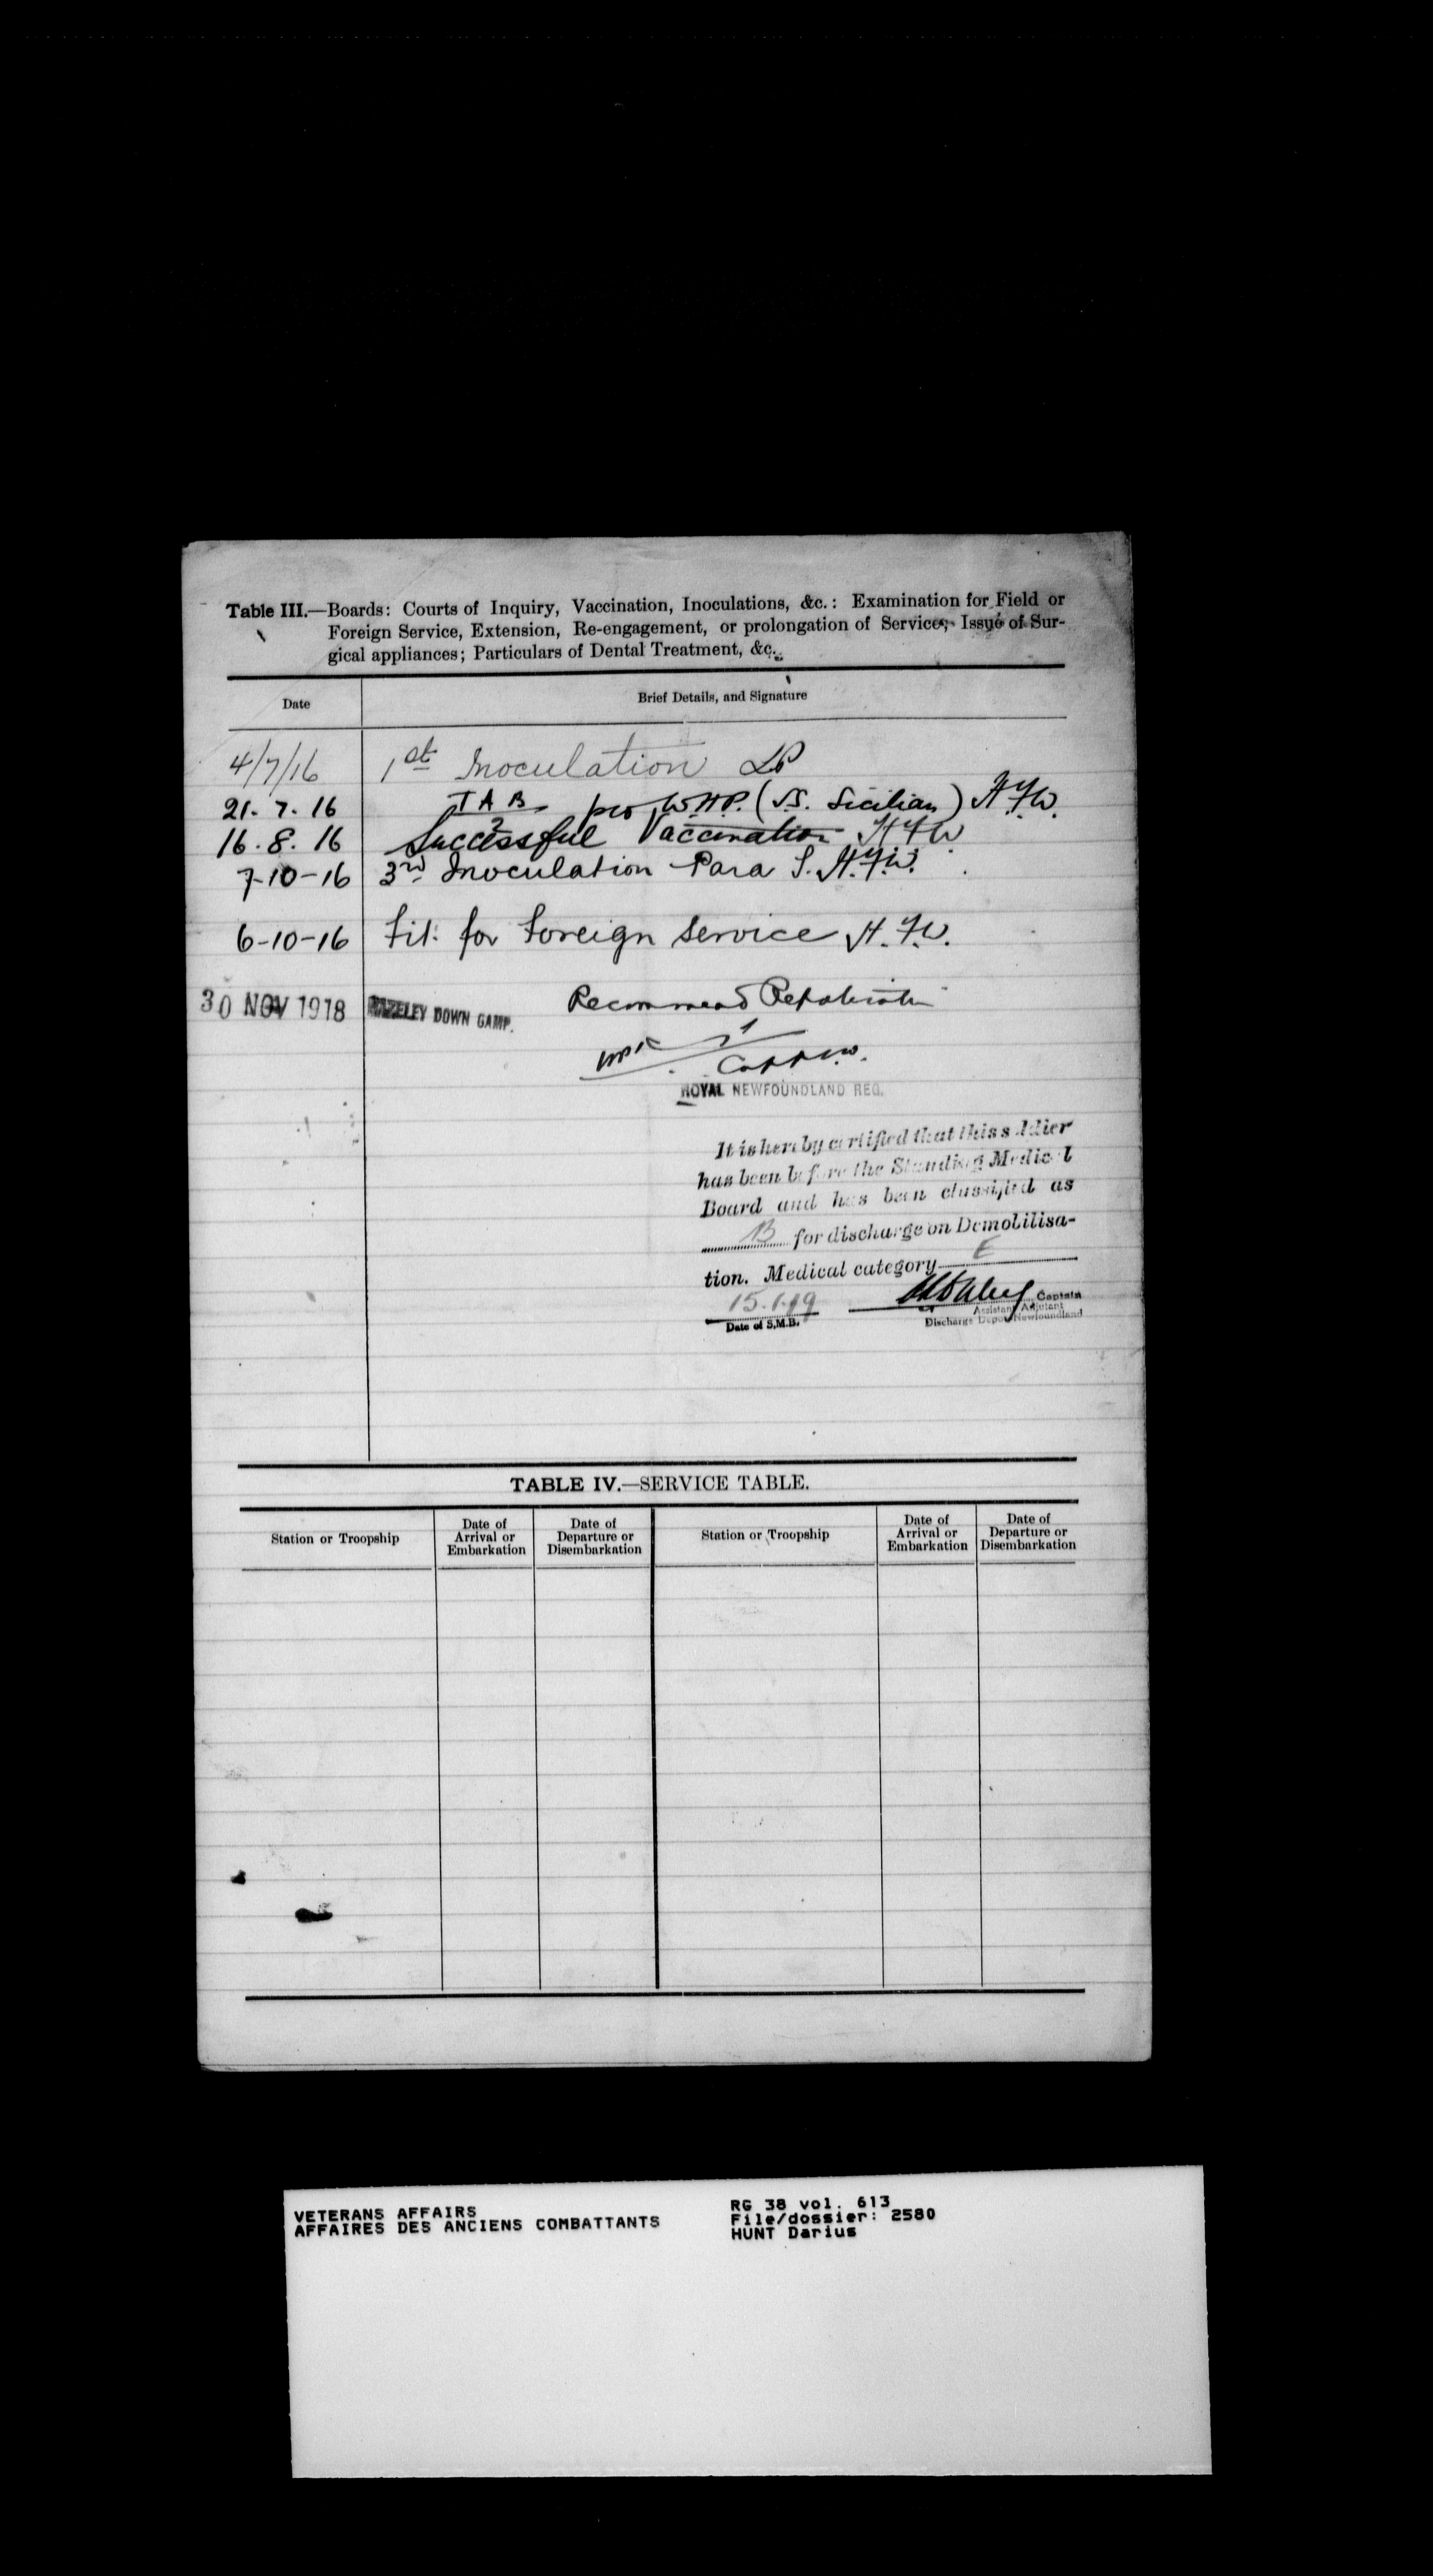 Table III.—Boards: Courts of Inquiry, Vaccination, Inoculations, &c.: Examination for Field or
Foreign Service, Extension, Re-engagement, or prolongation of Service; Issue of Sur-
gical appliances; Particulars of Dental Treatment, &c.
Date Brief Details, and Signature
4/7/16 1st Inoculation
21.7.16 TAB per W.H.P. (S.S. Sicilian) H.F.W.
2
16.8.16 Successful Vaccination H.F.W.
7-10-16 3rd Inoculation Para H.F.W.
6-10-16 Fit for Foreign Service H.F.W.
30 NOV 1918 HAZELEY DOWN CAMP. Recommend Repatriation
ROYAL NEWFOUNDLAND REG.
It is hereby certified that this soldier
has been before the Standing Medical
Board and has been classified as
B for discharge on Demobilisa-
tion. Medical category E
15.1.19 Captain
Assistant Adjutant
Date of S.M.B. Discharge Depot Newfoundland
TABLE IV.—SERVICE TABLE.
Station or Troopship Date of Arrival or Embarkation Date of Departure or Disembarkation Station or Troopship Date of Arrival or Embarkation Date of Departure or Disembarkation
VETERANS AFFAIRS
AFFAIRES DES ANCIENS COMBATTANTS
RG 38 vol. 613
File/dossier: 2580
HUNT Darius